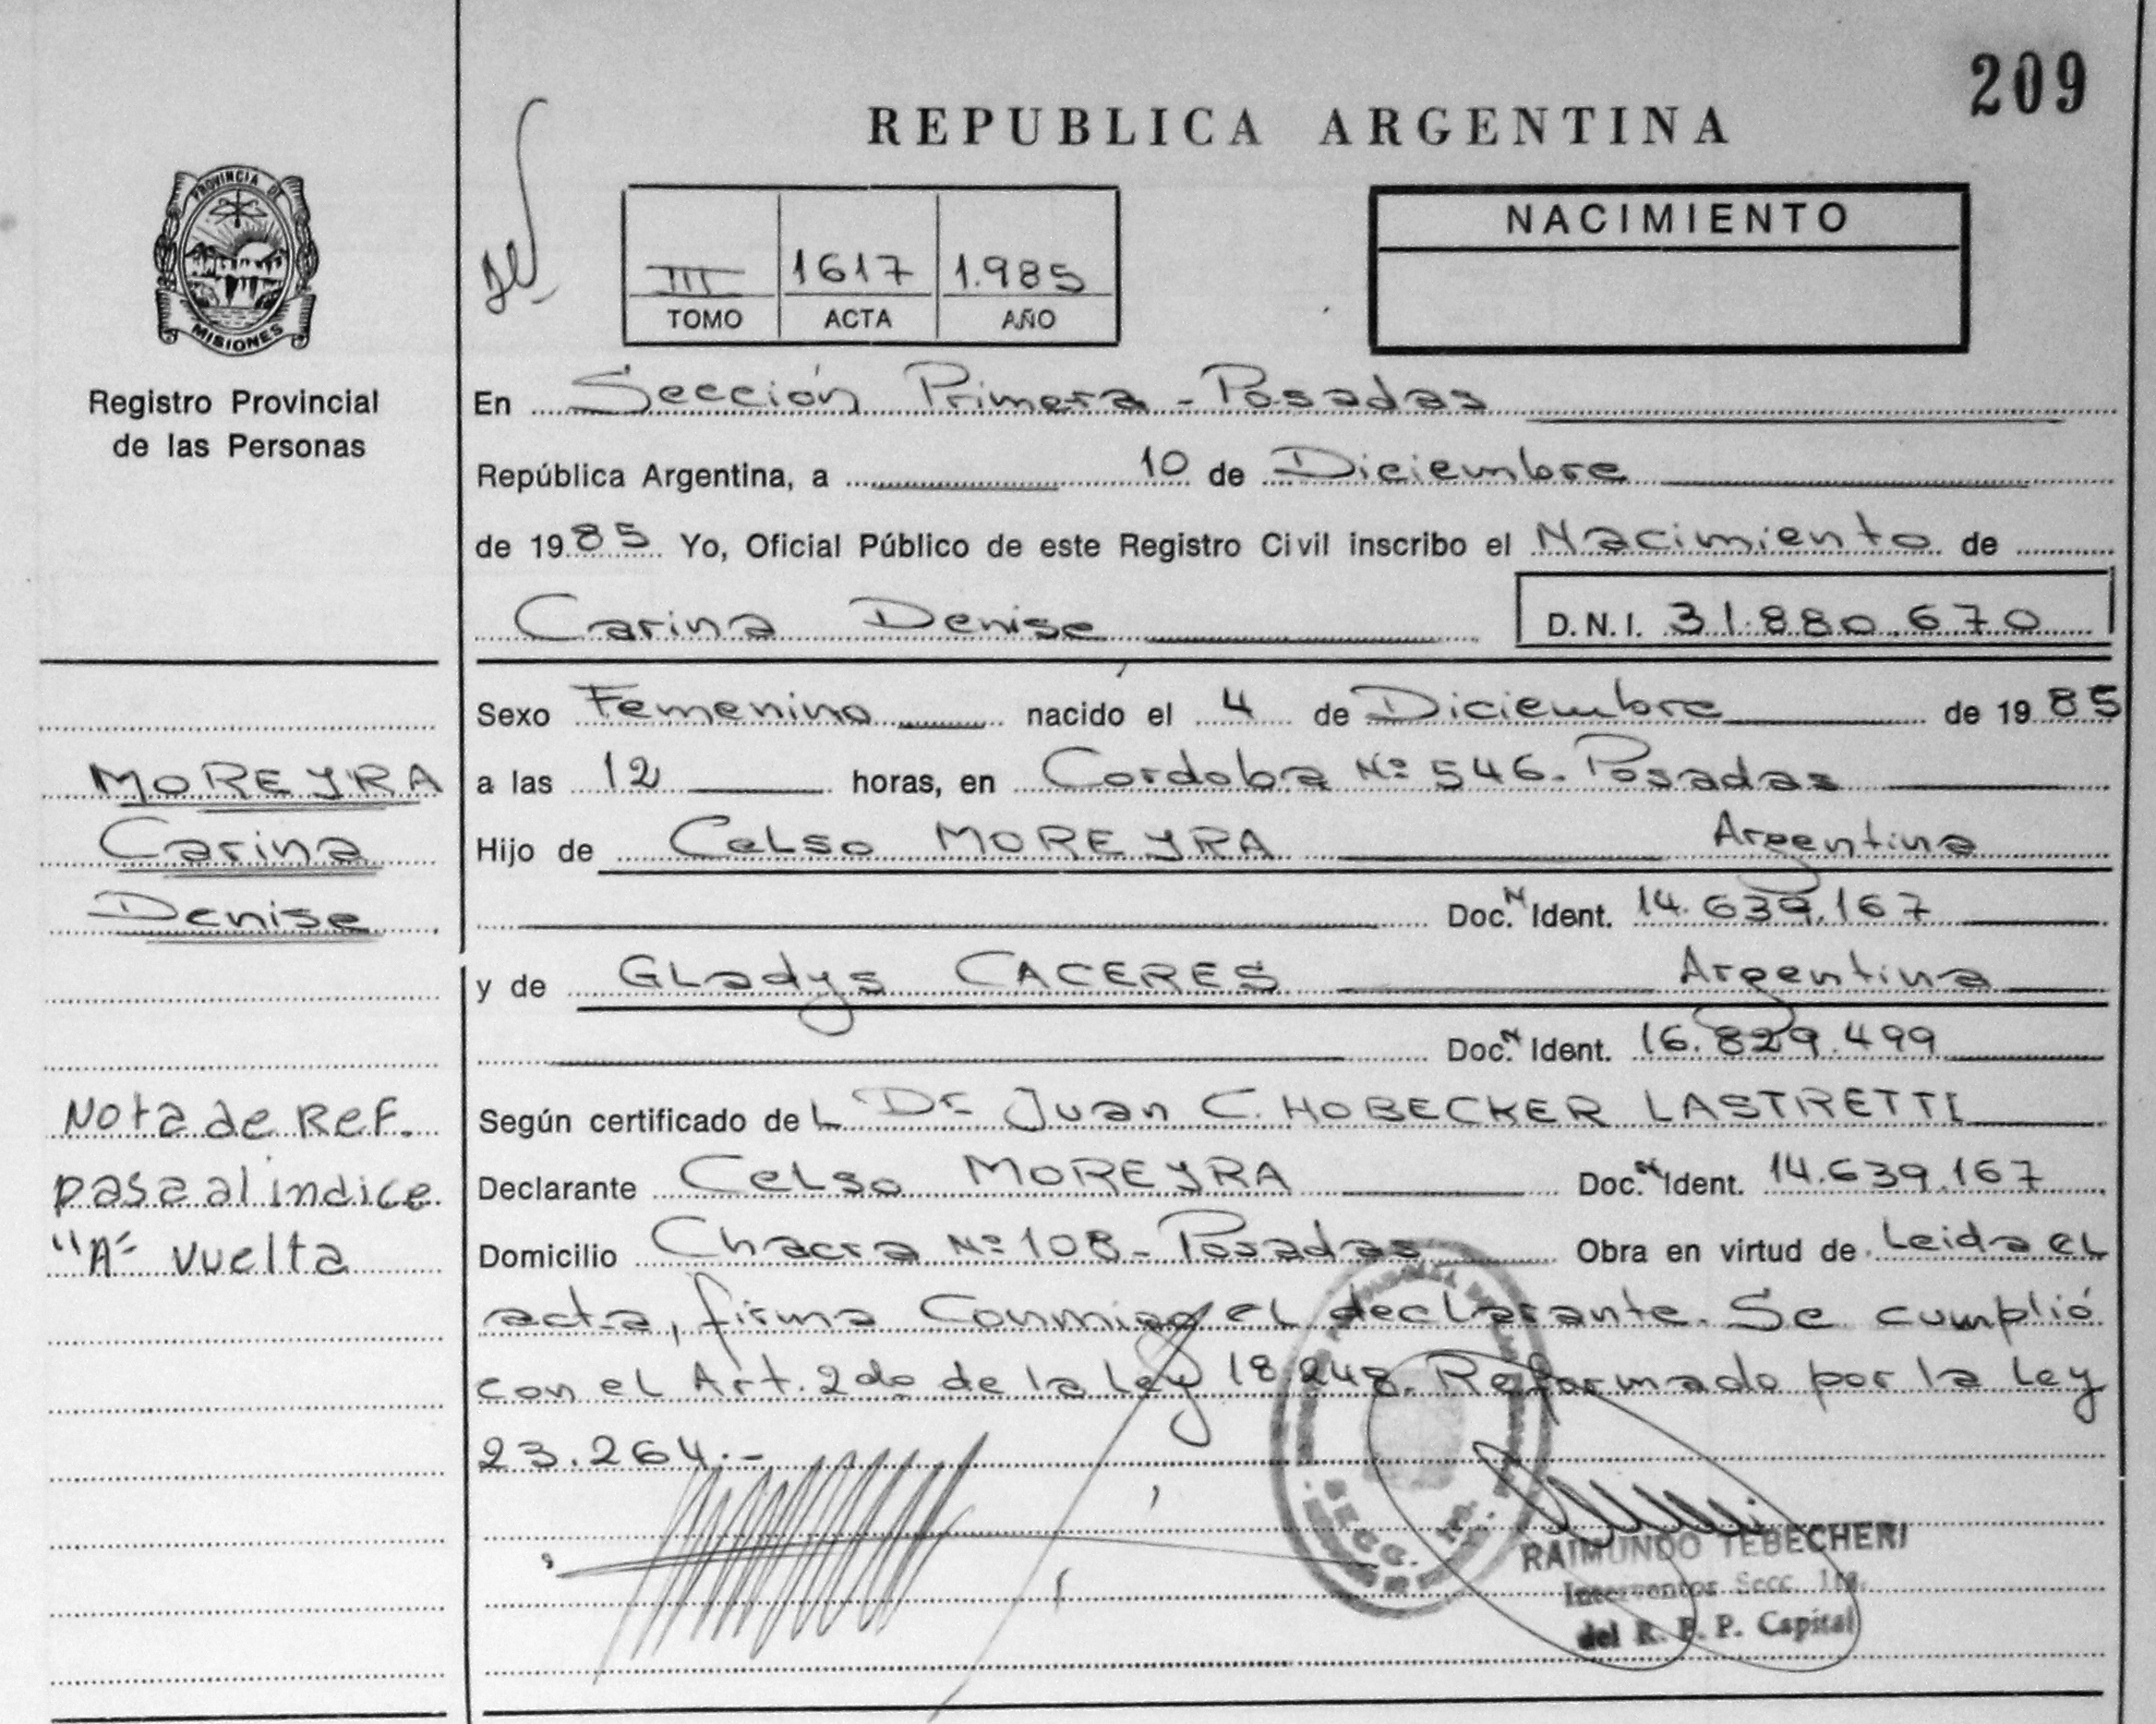 209
REPUBLICA ARGENTINA
PROVINCIA DE
MISIONES
Registro Provincial
de las Personas
III 1617 1.985
TOMO ACTA AÑO
NACIMIENTO
En Sección Primera - Posadas
República Argentina, a 10 de Diciembre
de 1985 Yo, Oficial Público de este Registro Civil inscribo el Nacimiento de
Carina Denise D.N.I. 31.880.670
Sexo Femenino nacido el 4 de Diciembre de 1985
a las 12 horas, en Cordoba Nº 546 - Posadas
Hijo de Celso MOREYRA Argentina
Doc. N Ident. 14.639.167
y de Gladys CACERES Argentina
Doc. N Ident. 16.829.499
Según certificado del Dr Juan C. HOBECKER LASTRETTI
Declarante Celso MOREYRA Doc. N Ident. 14.639.167
Domicilio Chacra Nº 108 - Posadas Obra en virtud de Leida el
acta, firma conmigo el declarante. Se cumplió
con el Art. 2do de la Ley 18.248. Reformado por la Ley
23.264.-
MOREYRA
Carina
Denise
Nota de Ref.
pasa al indice
"A" vuelta
RAIMUNDO TEBECHERI
Interventor Secc. 1ra.
del R. P. P. Capital